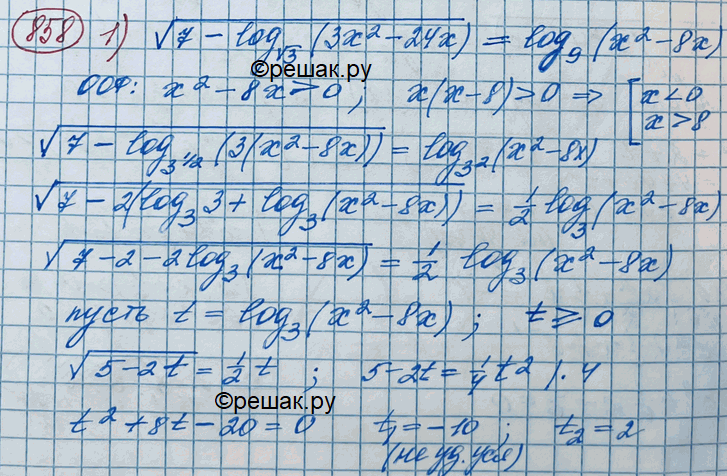 858 1) √(7 - log_√3 (3x² - 24x)) = log₉ (x² - 8x)
©решак.ру
ООФ: x² - 8x > 0; x(x-8) > 0 ⇒ [x < 0
x > 8
√(7 - log_3^½ (3(x² - 8x))) = log_3² (x² - 8x)
√(7 - 2(log₃ 3 + log₃ (x² - 8x))) = ½ log₃ (x² - 8x)
√(7 - 2 - 2log₃ (x² - 8x)) = ½ log₃ (x² - 8x)
пусть t = log₃ (x² - 8x); t ⩾ 0
√(5 - 2t) = ½ t; 5 - 2t = ¼ t² /·4
©решак.ру
t² + 8t - 20 = 0 t₁ = -10; t₂ = 2
(не уд. усл)